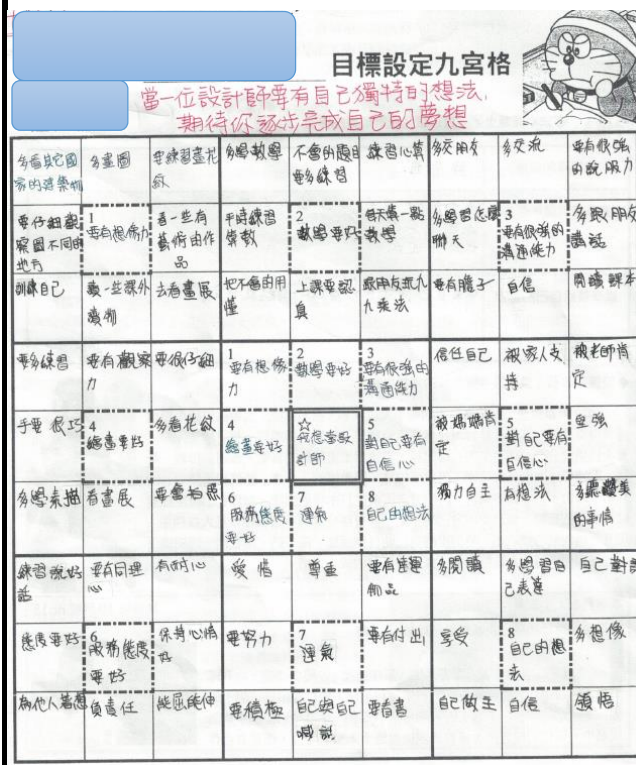 目標設定九宮格
當一位設計師要有自己獨特的想法,
期待你逐步完成自己的夢想
多看其它國
家的建築物
多畫圖
要練習畫花
紋
多學數學
不會的題目
要多練習
練習心算
多交朋友
多交流
要有很強
的說服力
要仔細觀
察圖不同的
地方
1
要有想像力
看一些有
藝術的作
品
平時練習
算數
2
數學要好
每天讀一點
數學
多學習怎麼
聊天
3
要有很強的
溝通能力
多跟朋友
講話
訓練自己
讀一些課外
讀物
去看畫展
把不會的用
懂
上課要認
真
跟朋友玩九
九乘法
要有膽子
自信
閱讀課本
要多練習
要有觀察
力
要很仔細
1
要有想像
力
2
數學要好
3
要有很強的
溝通能力
信任自己
被家人支
持
被老師肯
定
手要很巧
4
繪畫要好
多看花紋
4
繪畫要好
☆
我想當設
計師
5
對自己要有
自信心
被媽媽肯
定
5
對自己要有
自信心
堅強
多學素描
看畫展
要會拍照
6
服務態度
要好
7
運氣
8
自己的想法
獨力自主
有想法
多讚美
的事情
練習說好
話
要有同理
心
有耐心
愛惜
尊重
要有幸運
飾品
多閱讀
多學習自
己表達
自己對話
態度要好
6
服務態度
要好
保持心情
好
要努力
7
運氣
要有付出
享受
8
自己的想
法
多想像
為他人著想
負責任
能屈能伸
要積極
自己與自己
喊話
要看書
自己做主
自信
領悟